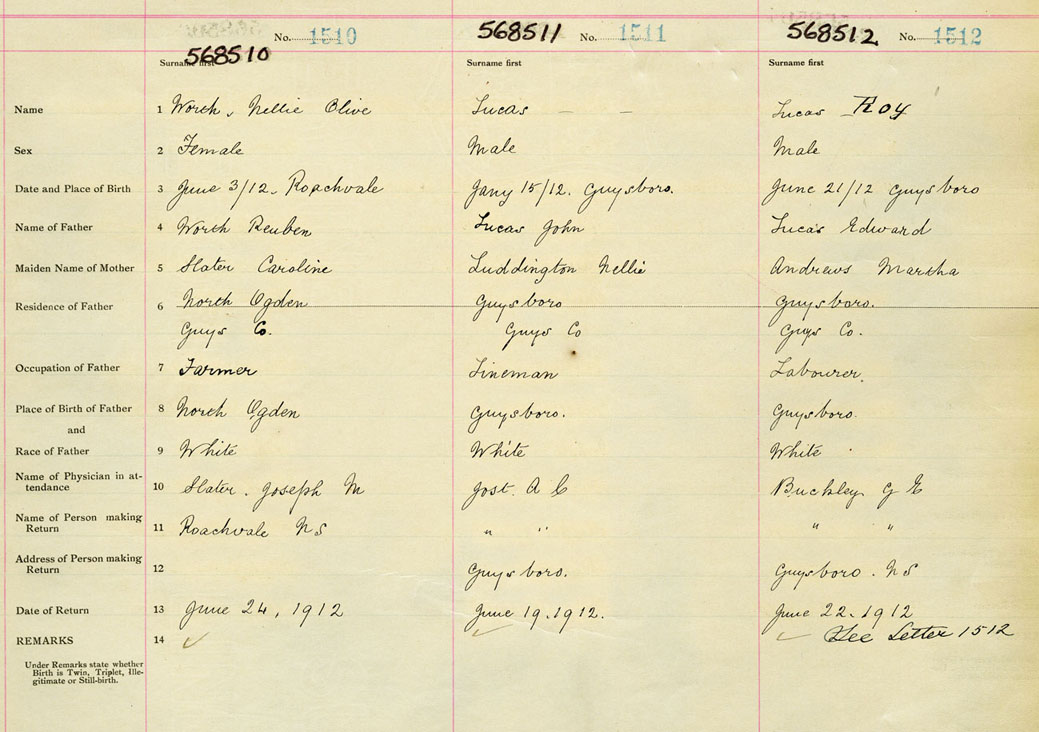 568510 No. 1510 568511 No. 1511 568512 No. 1512
Surname first Surname first Surname first
Name 1 Worth, Nellie Olive Lucas — — Lucas Roy
Sex 2 Female Male Male
Date and Place of Birth 3 June 3/12. Roachvale Jany 15/12. Guysboro. June 21/12 Guysboro
Name of Father 4 Worth Reuben Lucas John Lucas Edward
Maiden Name of Mother 5 Slater Caroline Luddington Nellie Andrews Martha
Residence of Father 6 North Ogden Guysboro Guysboro.
Guys Co. Guys Co Guys Co.
Occupation of Father 7 Farmer Lineman Labourer.
Place of Birth of Father 8 North Ogden Guysboro. Guysboro.
and
Race of Father 9 White White White
Name of Physician in at-
tendance 10 Slater. Joseph M Jost. A C Buckley G E
Name of Person making
Return 11 Roachvale N S " " " "
Address of Person making
Return 12 Guysboro. Guysboro. N S
Date of Return 13 June 24, 1912 June 19. 1912. June 22. 1912
REMARKS 14 ✓ ✓ ✓ See Letter 1512
Under Remarks state whether
Birth is Twin, Triplet, Ille-
gitimate or Still-birth.